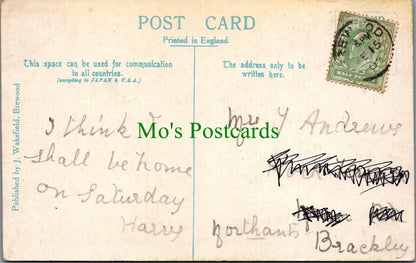 POST CARD
Printed in England.
This space can be used for communication
to all countries.
(excepting to JAPAN & U.S.A.)
The address only to be
written here.
Published by J. Wakefield, Brewood
HALF
Mo's Postcards
I think I
shall be home
on Saturday
Harry
Andrews
Northants
Brackley